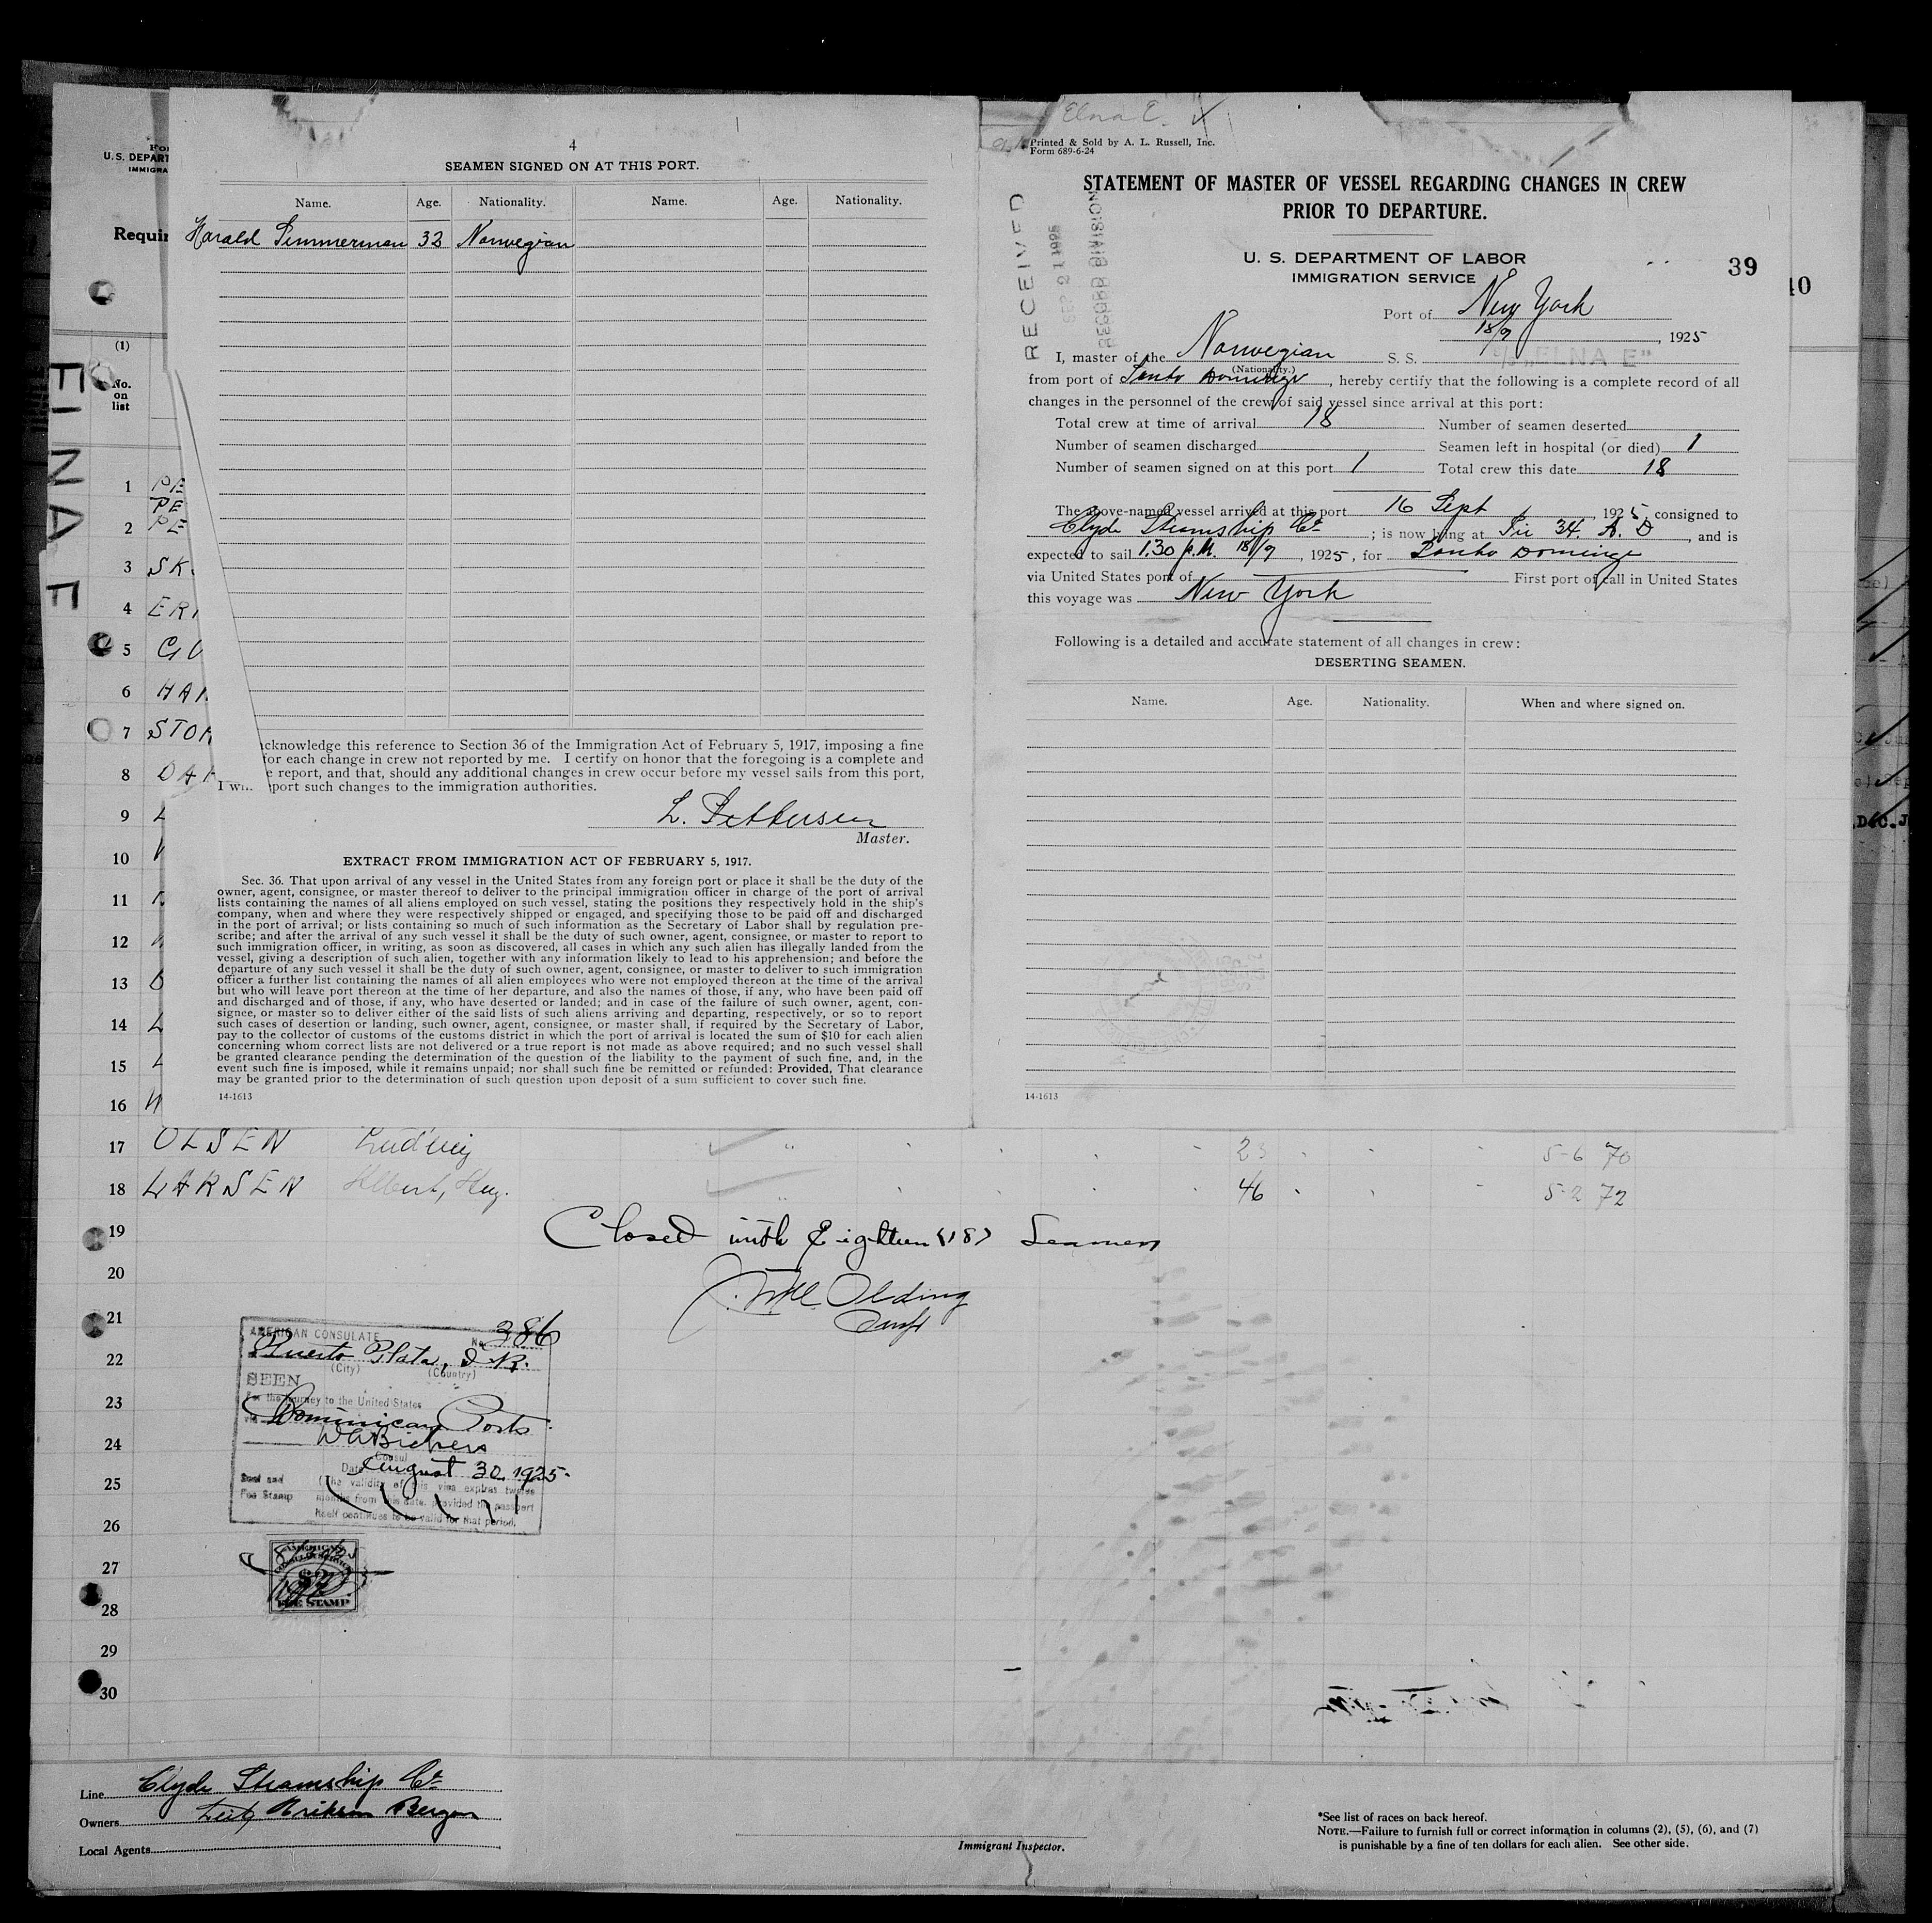 4
SEAMEN SIGNED ON AT THIS PORT.
Name. Age. Nationality. Name. Age. Nationality.
Harald Simmerman 32 Norwegian
acknowledge this reference to Section 36 of the Immigration Act of February 5, 1917, imposing a fine
for each change in crew not reported by me. I certify on honor that the foregoing is a complete and
report, and that, should any additional changes in crew occur before my vessel sails from this port,
I port such changes to the immigration authorities.
L. Pettersen
Master.
EXTRACT FROM IMMIGRATION ACT OF FEBRUARY 5, 1917.
Sec. 36. That upon arrival of any vessel in the United States from any foreign port or place it shall be the duty of the
owner, agent, consignee, or master thereof to deliver to the principal immigration officer in charge of the port of arrival
lists containing the names of all aliens employed on such vessel, stating the positions they respectively hold in the ship's
company, when and where they were respectively shipped or engaged, and specifying those to be paid off and discharged
in the port of arrival; or lists containing so much of such information as the Secretary of Labor shall by regulation pre-
scribe; and after the arrival of any such vessel it shall be the duty of such owner, agent, consignee, or master to report to
such immigration officer, in writing, as soon as discovered, all cases in which any such alien has illegally landed from the
vessel, giving a description of such alien, together with any information likely to lead to his apprehension; and before the
departure of any such vessel it shall be the duty of such owner, agent, consignee, or master to deliver to such immigration
officer a further list containing the names of all alien employees who were not employed thereon at the time of the arrival
but who will leave port thereon at the time of her departure, and also the names of those, if any, who have been paid off
and discharged and of those, if any, who have deserted or landed; and in case of the failure of such owner, agent, con-
signee, or master so to deliver either of the said lists of such aliens arriving and departing, respectively, or so to report
such cases of desertion or landing, such owner, agent, consignee, or master shall, if required by the Secretary of Labor,
pay to the collector of customs of the customs district in which the port of arrival is located the sum of $10 for each alien
concerning whom correct lists are not delivered or a true report is not made as above required; and no such vessel shall
be granted clearance pending the determination of the question of the liability to the payment of such fine, and, in the
event such fine is imposed, while it remains unpaid; nor shall such fine be remitted or refunded: Provided, That clearance
may be granted prior to the determination of such question upon deposit of a sum sufficient to cover such fine.
14-1613
Elna E.
Printed & Sold by A. L. Russell, Inc.
Form 689-6-24
STATEMENT OF MASTER OF VESSEL REGARDING CHANGES IN CREW
PRIOR TO DEPARTURE.
U. S. DEPARTMENT OF LABOR
IMMIGRATION SERVICE
39
RECEIVED
SEP 21 1925
Port of New York
18/9, 1925
I, master of the Norwegian S. S. "ELNA E"
(Nationality.)
from port of Santo Domingo, hereby certify that the following is a complete record of all
changes in the personnel of the crew of said vessel since arrival at this port:
Total crew at time of arrival 18 Number of seamen deserted
Number of seamen discharged Seamen left in hospital (or died) 1
Number of seamen signed on at this port 1 Total crew this date 18
The above-named vessel arrived at this port 16 Sept, 1925, consigned to
Clyde Steamship Co; is now lying at Pir 34. A. D, and is
expected to sail 1.30 p.M. 18/9, 1925, for Santo Domingo
via United States port of First port of call in United States
this voyage was New York
Following is a detailed and accurate statement of all changes in crew:
DESERTING SEAMEN.
Name. Age. Nationality. When and where signed on.
14-1613
U. S. DEPART
IMMIGRA
Requir
40
ELNA E
(1)
No.
on
list
1 PE
PE
2 PE
3 SK
4 ERI
5 GU
6 HAN
7 STOR
8 DA
9 L
10
11
12
13
14 L
15 L
16
17 OLSEN Ludvig " 23 5-6 70
18 LARSEN Albert, Hey. " 46 5-2 72
19
Closed with Eighteen (18) Seamen
20
Olding
21
22
23
24
25
26
27
28
29
30
AMERICAN CONSULATE No. 386
Puerto Plata, D.R.
(City) (Country)
SEEN
For the journey to the United States
via Dominican Ports
W A Bickers
Consul
Date August 30, 1925.
Seal and
Fee Stamp
(The validity of this visa expires twelve
months from this date, provided the passport
itself continues to be valid for that period.
AMERICAN
FEE STAMP
Line Clyde Steamship Co
Owners Leif Erikson Bergen
Local Agents
Immigrant Inspector.
*See list of races on back hereof.
NOTE.—Failure to furnish full or correct information in columns (2), (5), (6), and (7)
is punishable by a fine of ten dollars for each alien. See other side.